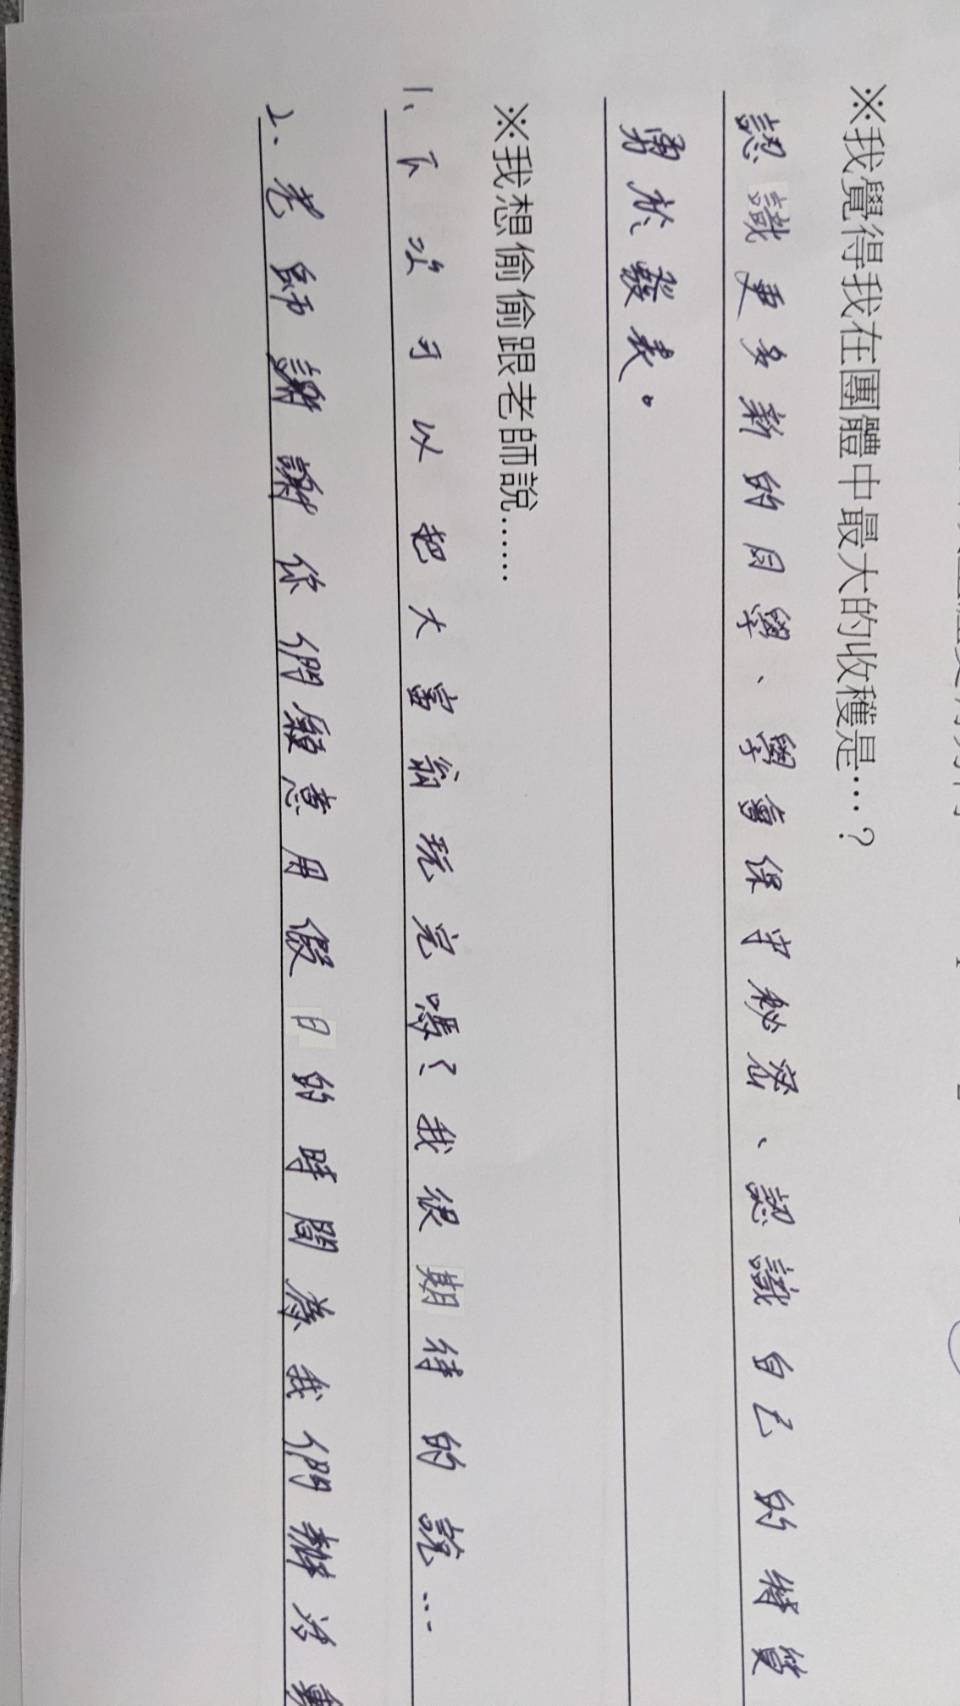 ※我覺得我在團體中最大的收穫是…?
認識更多新的同學、學會保守秘密、認識自己的特質
勇於發表。
※我想偷偷跟老師說……
1、下次可以把大富翁玩完嗎?我很期待的說…
2、老師謝謝你們願意用假日的時間為我們辦活動